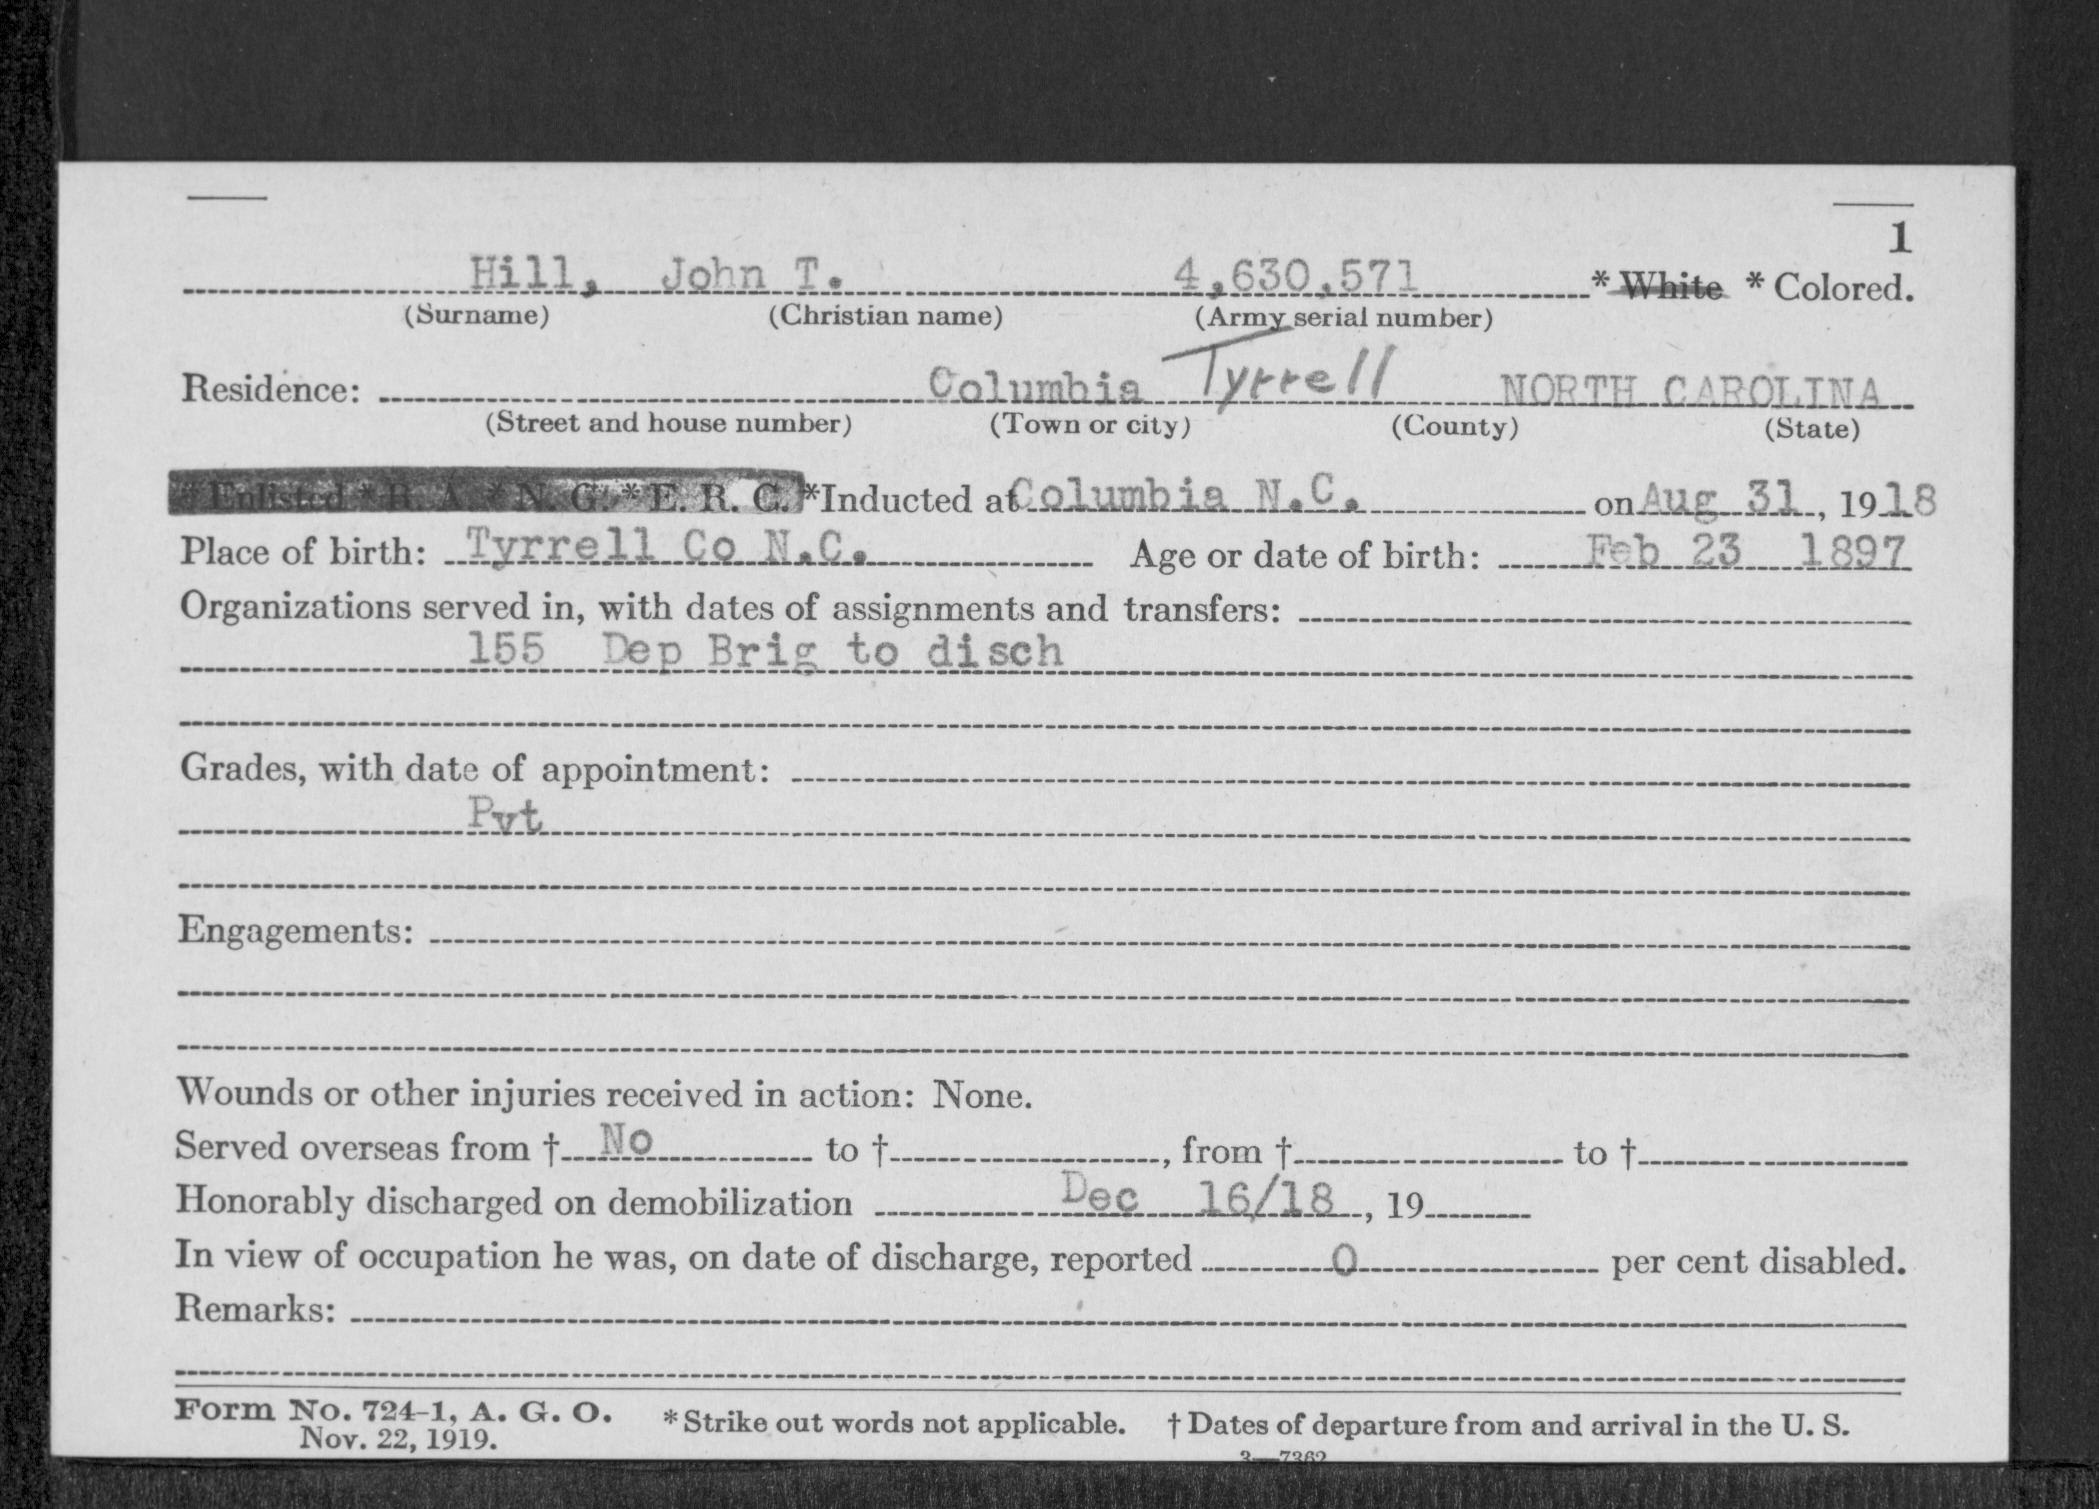 1
Hill, John T. 4,630,571 * White * Colored.
(Surname) (Christian name) (Army serial number)
Residence: Columbia Tyrrell NORTH CAROLINA
(Street and house number) (Town or city) (County) (State)
* Enlisted * R. A. * N. G. * E. R. C. *Inducted at Columbia N.C. on Aug 31, 1918
Place of birth: Tyrrell Co N.C. Age or date of birth: Feb 23 1897
Organizations served in, with dates of assignments and transfers:
155 Dep Brig to disch
Grades, with date of appointment:
Pvt
Engagements:
Wounds or other injuries received in action: None.
Served overseas from † No to † , from † to †
Honorably discharged on demobilization Dec 16/18 , 19
In view of occupation he was, on date of discharge, reported 0 per cent disabled.
Remarks:
Form No. 724-1, A. G. O. *Strike out words not applicable. † Dates of departure from and arrival in the U. S.
Nov. 22, 1919.
3—7362